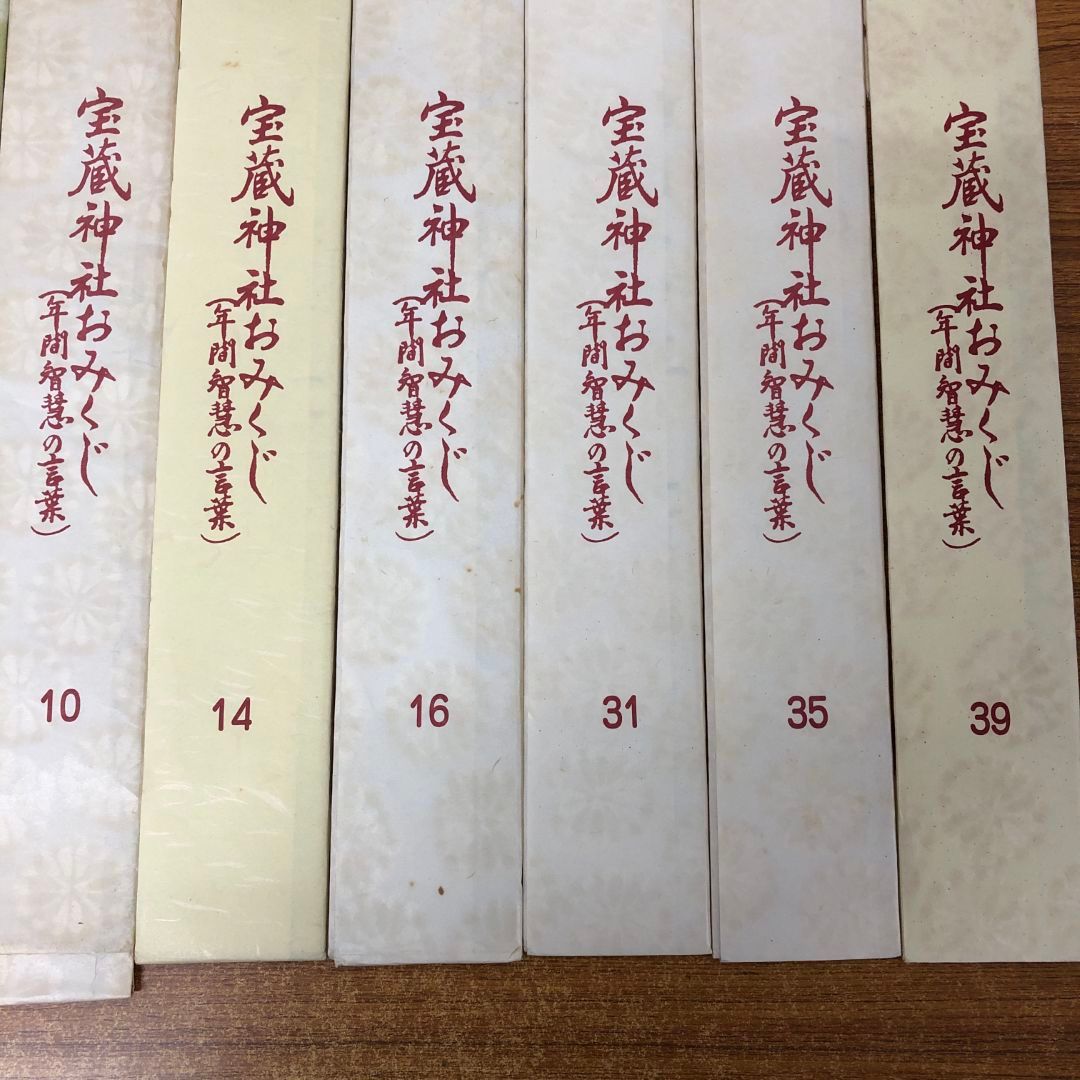 宝蔵神社おみくじ
（年間智慧の言葉）
10
宝蔵神社おみくじ
（年間智慧の言葉）
14
宝蔵神社おみくじ
（年間智慧の言葉）
16
宝蔵神社おみくじ
（年間智慧の言葉）
31
宝蔵神社おみくじ
（年間智慧の言葉）
35
宝蔵神社おみくじ
（年間智慧の言葉）
39